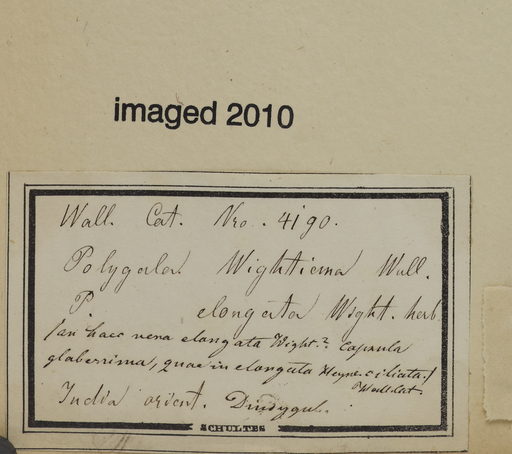 imaged 2010
Wall. Cat. Nro. 4190.
Polygala Wightiana Wall.
P. elongata Wight. herb
(an haec vera elongata Wight? Capsula
glaberrima, quae in elongata Heyne ciliata.)
Wall. Cat.
India orient. Dindygul.
SCHULTES